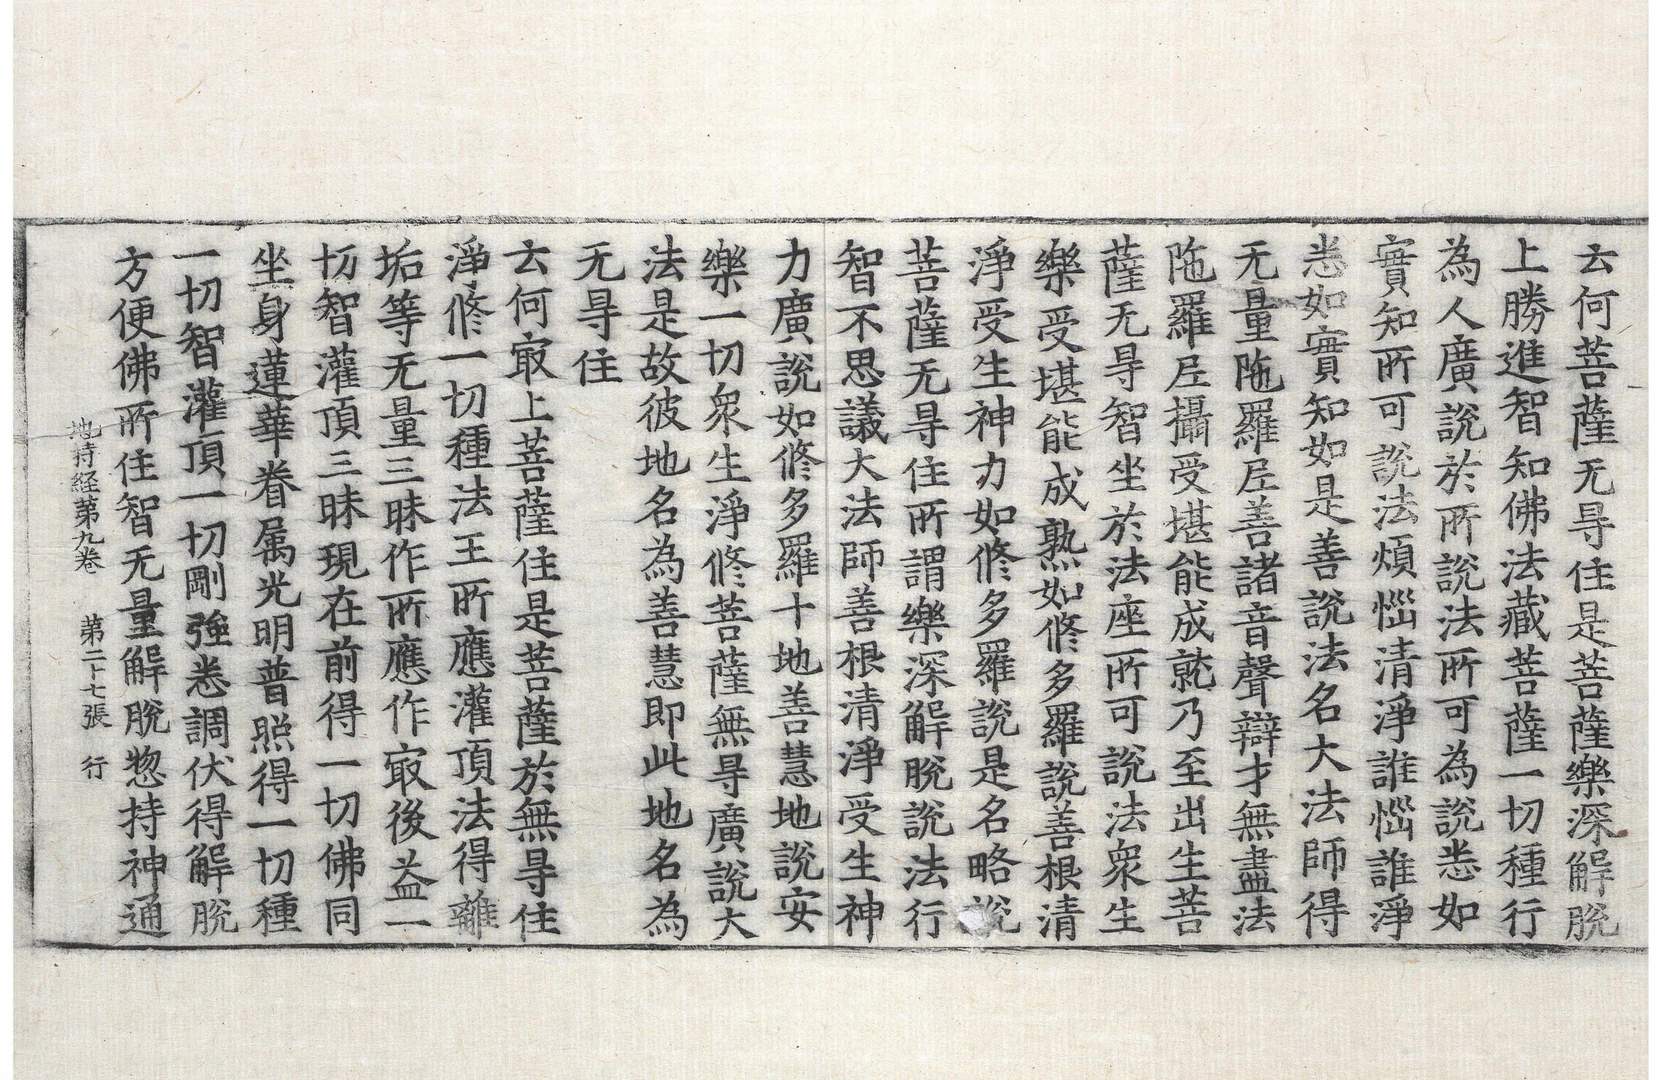 云何菩薩无㝵住是菩薩樂深解脫
上勝進智知佛法藏菩薩一切種行
為人廣說於所說法所可為說悉如
實知所可說法煩惱清淨誰惱誰淨
悉如實知如是善說法名大法師得
无量陁羅𡰱善諸音聲辯才無盡法
陁羅𡰱攝受堪能成就乃至出生菩
薩无㝵智坐於法座所可說法衆生
樂受堪能成熟如修多羅說善根清
淨受生神力如修多羅說是名略說
菩薩无㝵住所謂樂深解脫說法行
智不思議大法師善根清淨受生神
力廣說如修多羅十地善慧地說安
樂一切衆生淨修菩薩無㝵廣說大
法是故彼地名為善慧即此地名為
无㝵住
云何㝡上菩薩住是菩薩於無㝵住
淨修一切種法王所應灌頂法得離
垢等无量三昧作所應作㝡後益一
切智灌頂三昧現在前得一切佛同
坐身蓮華眷属光明普照得一切種
一切智灌頂一切剛強悉調伏得解脫
方便佛所住智无量解脫惣持神通
地持経第九卷 第二十七張 行